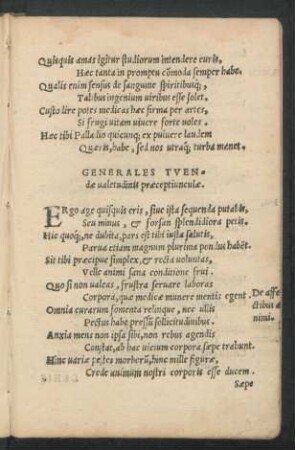 Quisquis amas igitur studiorum intendere curis,
Hæc tanta in promptu cōmoda semper habe.
Qualis enim sensus de sanguine spiritibusq;,
Talibus ingenium uiribus esse solet.
Custodire potes medicas hæc firma per artes,
Si frugi uitam uiuere forte uoles.
Hæc tibi Palladio quicunq; ex puluere laudem
Quæris, habe, sed nos utraq; turba manet.
GENERALES TVEN-
dæ ualetudinis præceptiunculæ.
ERgo age quisquis eris, siue ista sequenda putabis,
Seu minus, & forsan splendidiora petis.
Hic quoq;, ne dubita, pars est tibi iusta salutis,
Parua etiam magnum plurima pondus habēt.
Sit tibi præcipue simplex, & recta uoluntas,
Velle animi sana conditione frui.
Quo si non ualeas, frustra seruare laboras
Corpora, quæ medicæ munere mentis egent.
De affe
ctibus a
nimi.
Omnia curarum fomenta relinque, nec ullis
Pectus habe pressū sollicitudinibus.
Anxia mens non ipsa sibi, non rebus agendis
Constat, ab hac uicium corpora sæpe trahunt.
Hinc uariæ pestes morborū, hinc mille figuræ,
Crede animum nostri corporis esse ducem.
Sæpe